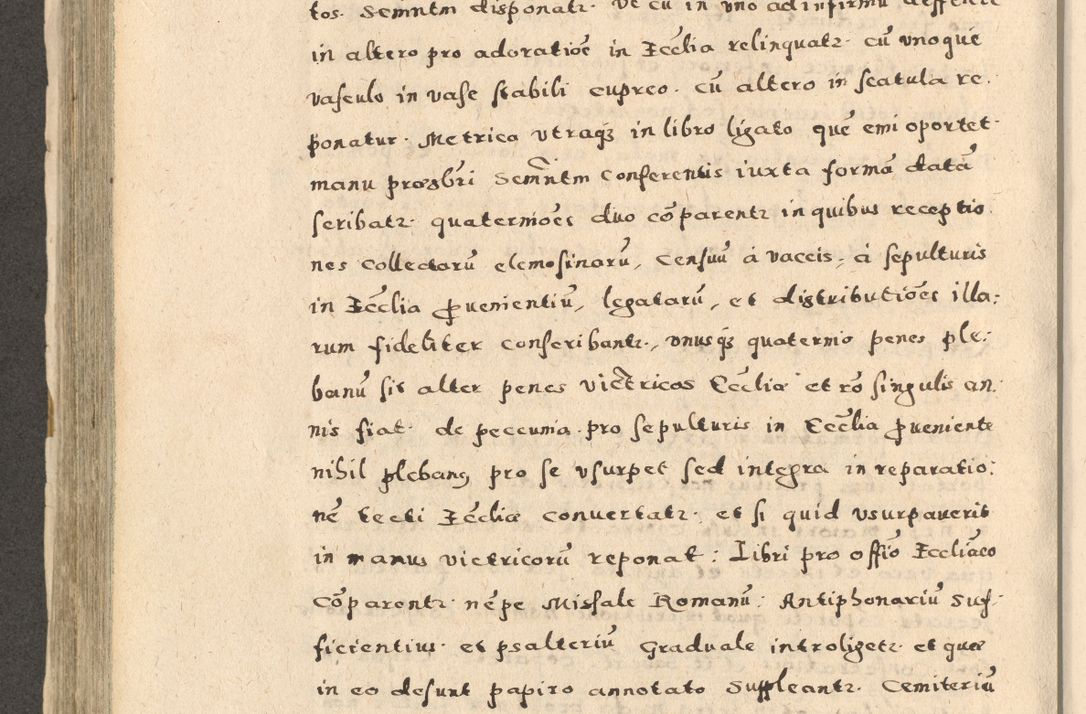 tos. Semntm disponatr. Ut cū in uno ad infirmū deffere
in altero pro adoratioē in Eccłia relinquatr. cū unoque
vasculo in vase stabili cupreo. cū altero in scatula re.
ponatur. Metrica utraqꝫ in libro ligato quē emi oportet.
manu proesbri Semn̄tm conferentis iuxta formā datā
scribatr. quaternioēs duo cōparentr in quibus receptio.
nes collectarū elemosinarū, Censuū à vaccis, à sepulturis
in Eccłia ꝓuenientiū, legatarū, et distributioēs illa:
rum fideliter conscribantr., unusqꝫ quaternio penes ple:
banū sit alter penes victricos Eccłiæ et rō singulis an:
nis fiat. de peccunia pro sepulturis in Eccłia ꝓueniente
nihil plebanꝰ pro se usurpet sed integra in reparatio:
nē tecti Eccliæ convertatr. et si quid usurpaverit
in manus victricorū reponat: Libri pro offio Eccliaco
cōparentr. nēpe Missale Romanū: Antiphonariū suf:
ficientius. et psalteriū Graduale introligetr et quæ
in eo desunt papiro annotato Suppleantr. Cemiteriū